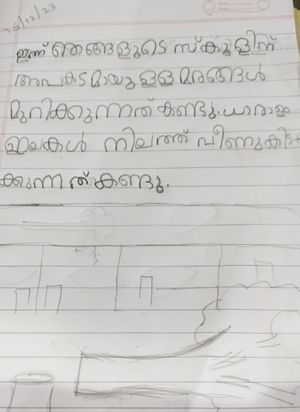 15/12/23
ഇന്ന് ഞങ്ങളുടെ സ്കൂളിന്
അപകടമായുള്ള മരങ്ങൾ
മുറിക്കുന്നത് കണ്ടു. ധാരാളം
ഇലകൾ നിലത്ത് വീണുകിട
ക്കുന്നത് കണ്ടു.